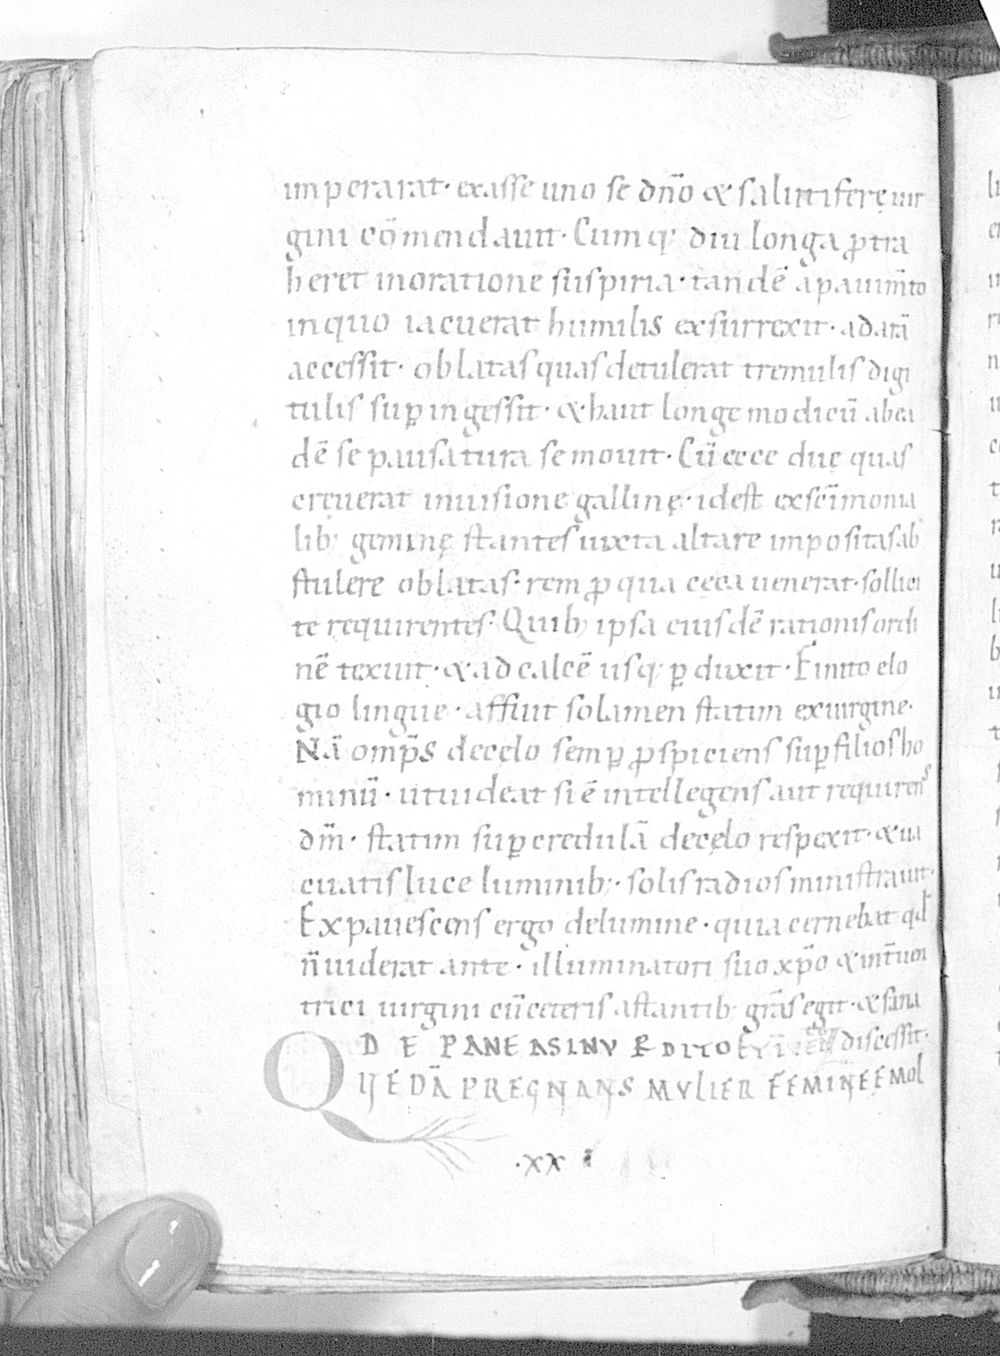 imperarat· exasse uno se dn̄o & salutiferę uir
gini cōmendauit· Cumq; diu longa ꝓtra
heret inoratione suspiria· tandē apauim̄to
inquo iacuerat humilis exsurrexit· adarā
accessit· oblatas quas detulerat tremulis digi
tulis suꝑingessit· & haut longe modicū abea
dē se pausatura se mouit· Cū ecce duę quas
cręuerat inuisione gallinę· idest exscīmonia
lib; geminę stantes iuxta altare impositas ab
stulere oblatas· rem ꝓ qua ceca uenerat· sollici
te requirentes· Quib; ipsa eiusdē rationis ordi
nē texuit· & ad calcē usq; ꝑduxit· Finito elo
gio lingue· affuit solamen statim exuirgine·
Nā omp̄s decęlo semꝑ ꝓspiciens suꝑ filios ho
minū· utuideat si ē intellegens aut requirens
dm̄· statim suꝑ credulā decęlo respexit· & ua
cuatis luce luminib;· solis radios ministrauit·
Expauescens ergo delumine· quia cernebat qd
n̄ uiderat ante· illuminatori suo xp̄o & int̄uen
trici uirgini cū ceteris astantib; grās egit· & sana
DE PANE ASINU RDITO discessit·
QUEDĀ PREGNANS MVLIER FEMINEE MOL
·XX